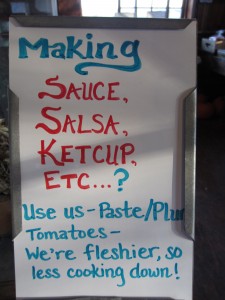 Making
Sauce,
Salsa,
Ketcup,
Etc...?
Use us - Paste/Plum
Tomatoes -
We're fleshier, so
less cooking down!